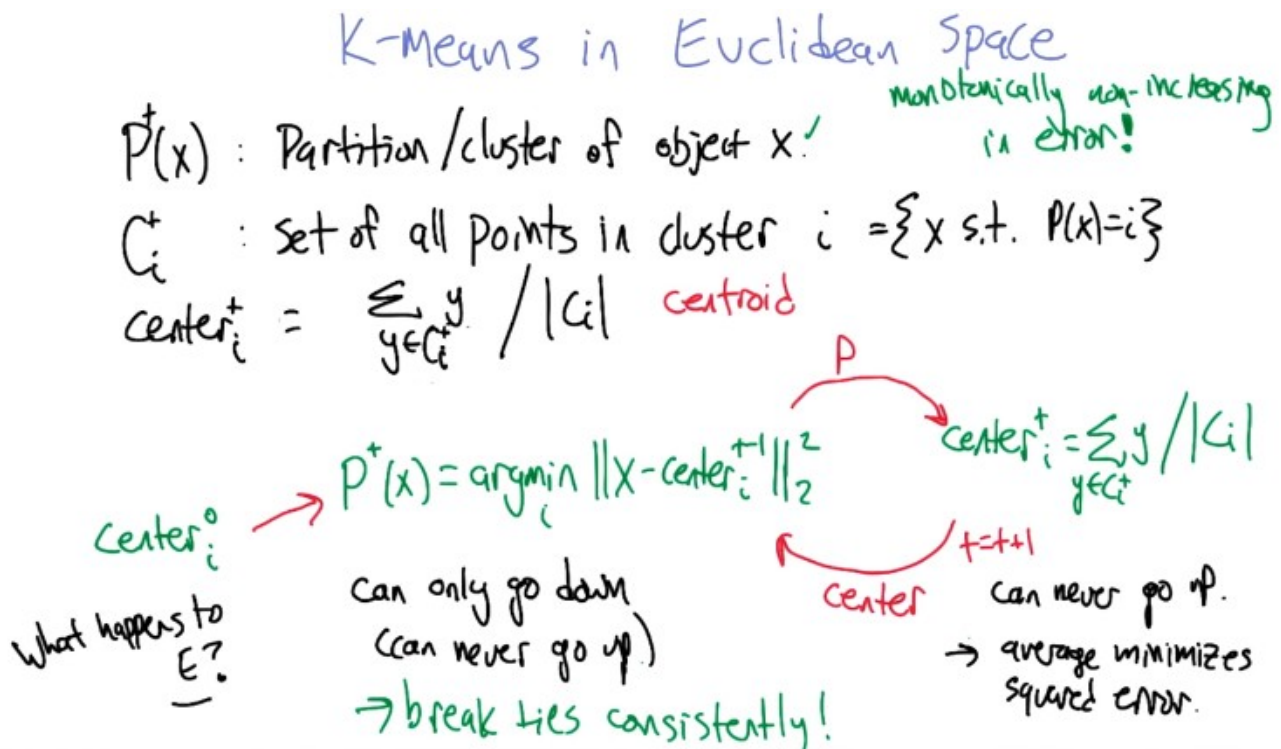 K-means in Euclidean Space
monotonically non-increasing
in error!
P^t(x) : Partition/cluster of object x. ✓
C_i^t : set of all points in cluster i = {x s.t. P(x)=i}
center_i^t = Σ_{y∈C_i^t} y / |C_i| centroid
P
P^t(x) = argmin_i ||x-center_i^{t-1}||_2^2
center_i^t = Σ_{y∈C_i^t} y / |C_i|
center_i^0
t=t+1
center
What happens to
E?
can only go down
(can never go up)
→ break ties consistently!
can never go up.
→ average minimizes
squared error.